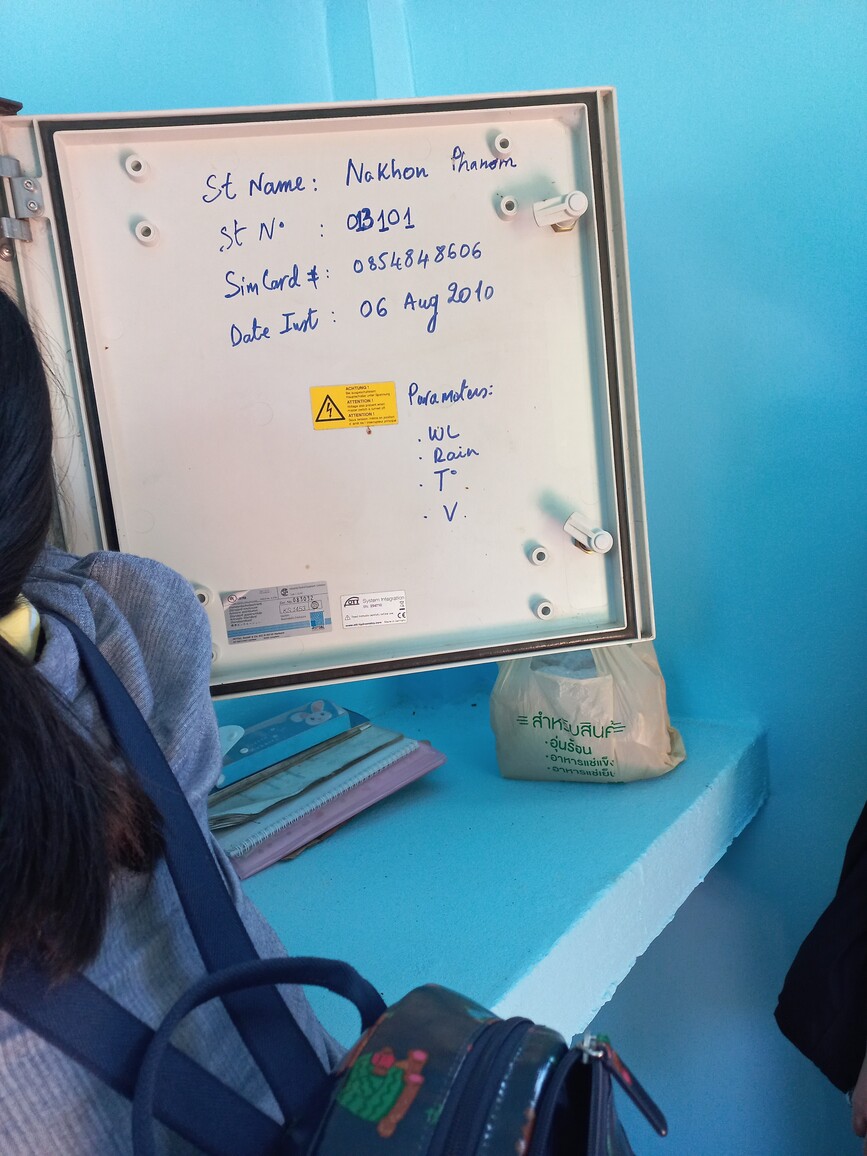 St Name: Nakhon Phanom
St N° : 013101
Sim Card #: 0854848606
Date Inst : 06 Aug 2010
ACHTUNG!
ATTENTION!
ATTENTION!
Parameters:
· WL
· Rain
· T°
· V
OTT System Integration
สำหรับสินค้า
·อุ่นร้อน
·อาหารแช่แข็ง
·อาหารแช่เย็น